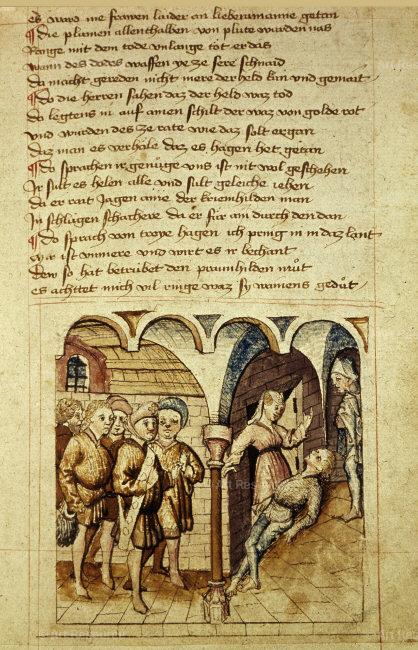 es ward nie frawen laider an lieben manne getan
¶ Die plumen allenthalben von plute warden nas
Range mit dem tode vnlange tet er das
wann des dodes waffen ye ze sere schnaid
da macht gereden nicht mere der held kün vnd gemait
¶ Do die herren sahen daz der held waz tod
do legtens in auf ainen schilt der waz von golde rot
vnd wurden des ze rate wie daz solt ergan
daz man es verhäle daz es hagen het getan
¶ Do sprachen ir genüge vns ist nit wol geschehen
Ir sült es helen alle vnd sült geleiche iehen
da er rait Jagen aine der kriemhilden man
In schlügen schachere da er für durch den dan
¶ Do sprach von troye hagen ich pring in in daz lant
mir ist vnmere vnd wirt es ir bechant
dew so hat betrübet den praunhilden müt
es achttet mich vil ringe waz sy wainens gedüt